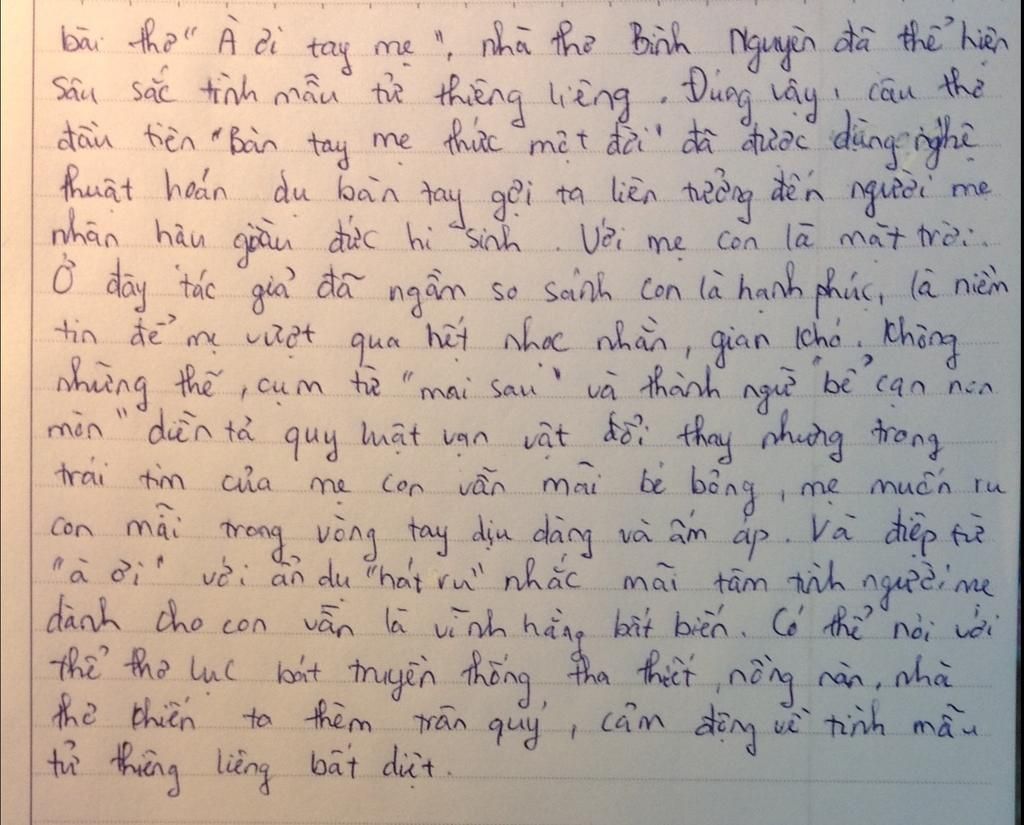 bài thơ "À ơi tay mẹ", nhà thơ Bình Nguyên đã thể hiện
sâu sắc tình mẫu tử thiêng liêng. Đúng vậy, câu thơ
đầu tiên "Bàn tay mẹ thức một đời" đã được dùng nghệ
thuật hoán dụ bàn tay gợi ta liên tưởng đến người mẹ
nhân hậu giàu đức hi sinh. Với mẹ con là mặt trời.
Ở đây tác giả đã ngầm so sánh con là hạnh phúc, là niềm
tin để mẹ vượt qua hết nhọc nhằn, gian khó. Không
những thế, cụm từ "mai sau" và thành ngữ "bể cạn non
mòn" diễn tả quy luật vạn vật đổi thay nhưng trong
trái tim của mẹ con vẫn mãi bé bỏng, mẹ muốn ru
con mãi trong vòng tay dịu dàng và ấm áp. Và điệp từ
"à ơi" với ẩn dụ "hát ru" nhắc mãi tâm tình người mẹ
dành cho con vẫn là vĩnh hằng bất biến. Có thể nói với
thể thơ lục bát truyền thống tha thiết, nồng nàn, nhà
thơ khiến ta thêm trân quý, cảm động về tình mẫu
tử thiêng liêng bất diệt.